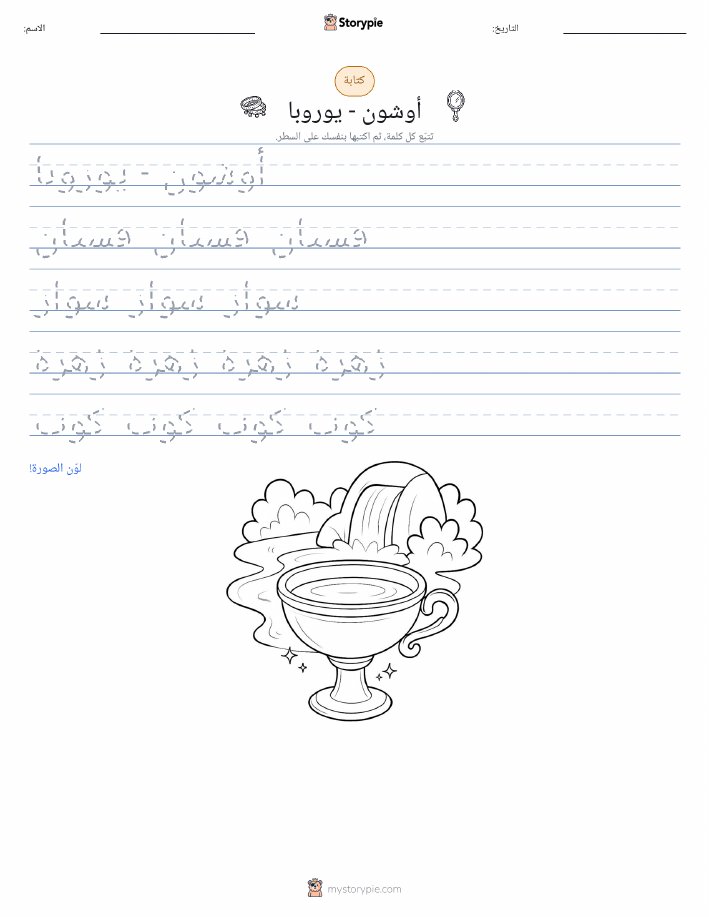 Storypie
الاسم:
التاريخ:
كتابة
أوشون - يوروبا
تتبّع كل كلمة، ثم اكتبها بنفسك على السطر.
أوشون - يوروبا
فستان فستان فستان
سوار سوار سوار
زهرة زهرة زهرة زهرة
كوب كوب كوب كوب
لوّن الصورة!
mystorypie.com